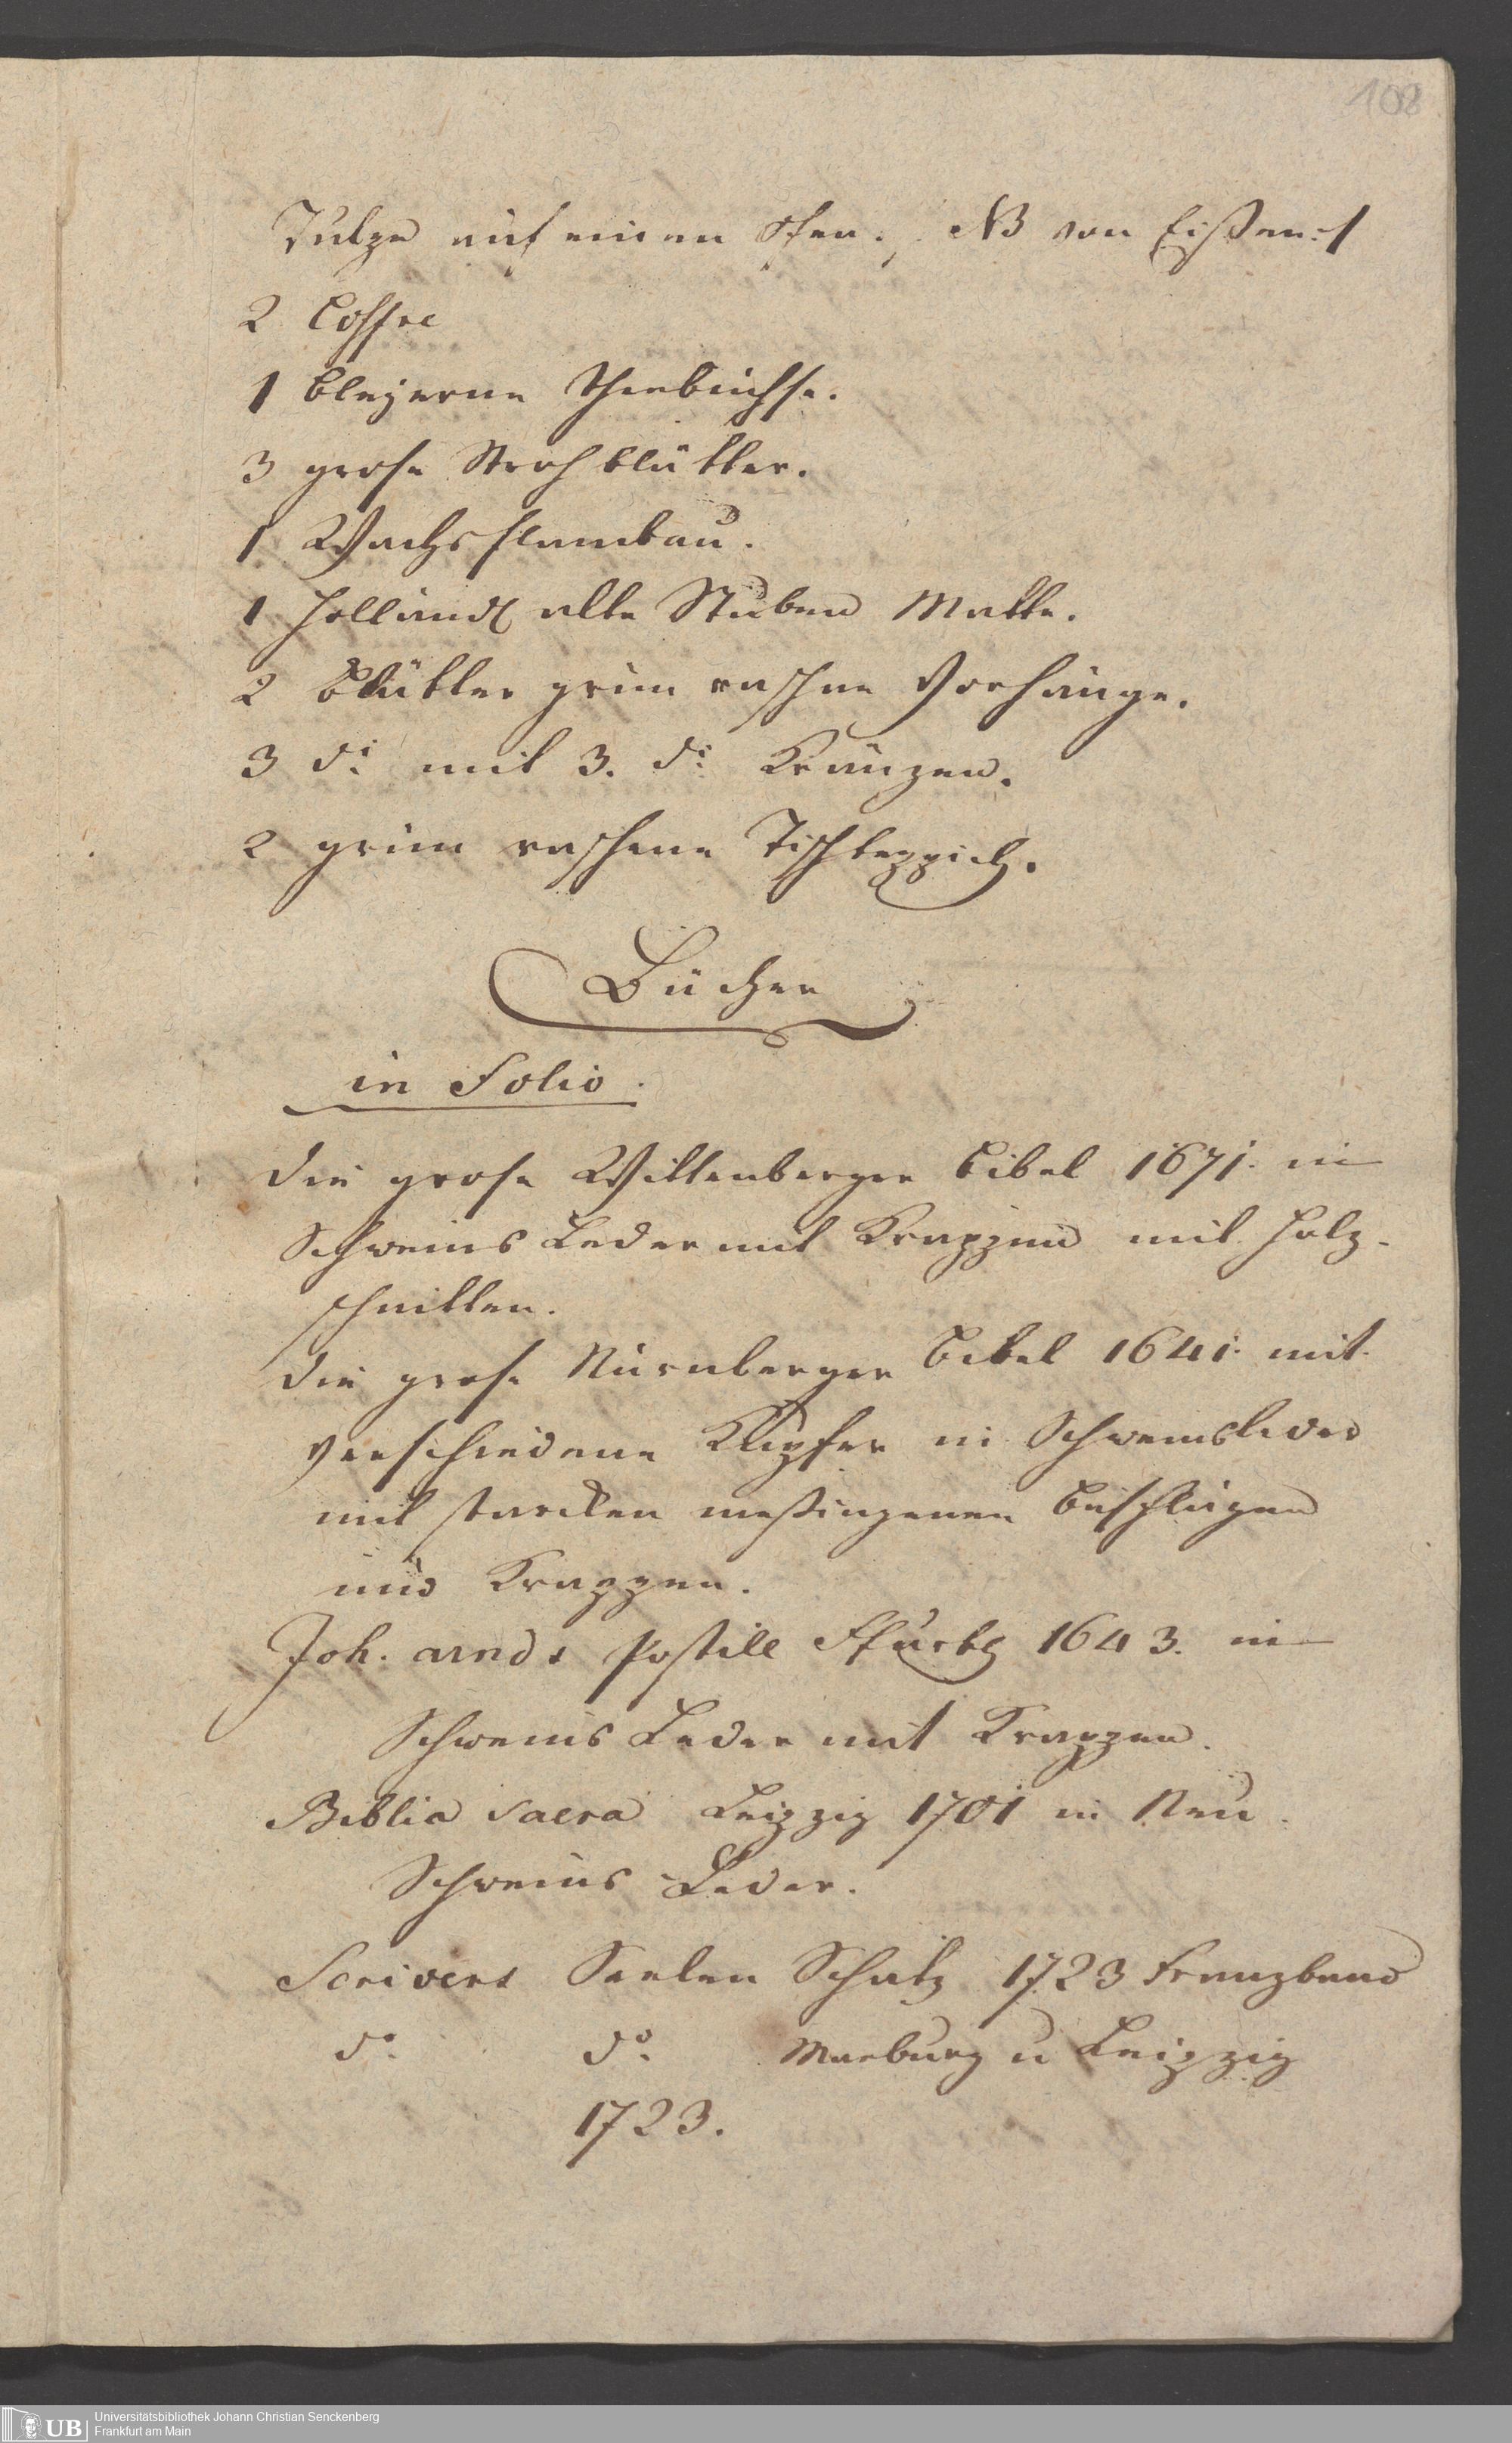 108
auf einen Ofen. NB von Eißen. 1
2 Coffre
1 bleyerne Theebüchse.
3 grose Stroh blätter.
1 Wachs flambau.
1 Holländ alte Stuben Matte.
2 Blätter grün raschne Vorhänge.
3 do mit 3. do Kränzen.
2 grün raschene Tischteppich.
Bücher
in Folio.
die grose Wittenberger Bibel 1671. in
Schweins Leder mit Krappen mit Holz-
schnitten.
die grose Nürnberger Bibel 1641. mit
verschiedene Kupfer in Schweinsleder
mit starcken meßingenen Beschlägen
und Krappen.
Joh. arnds Postill Ffurth 1643. in
Schweins Leder mit Krappen.
Biblia Sacra Leipzig 1701 in Neu
Schweins Leder.
Scrivers Seelen Schatz 1723 Franzband
do do Marburg u Leipzig
1723.
UB Universitätsbibliothek Johann Christian Senckenberg
Frankfurt am Main